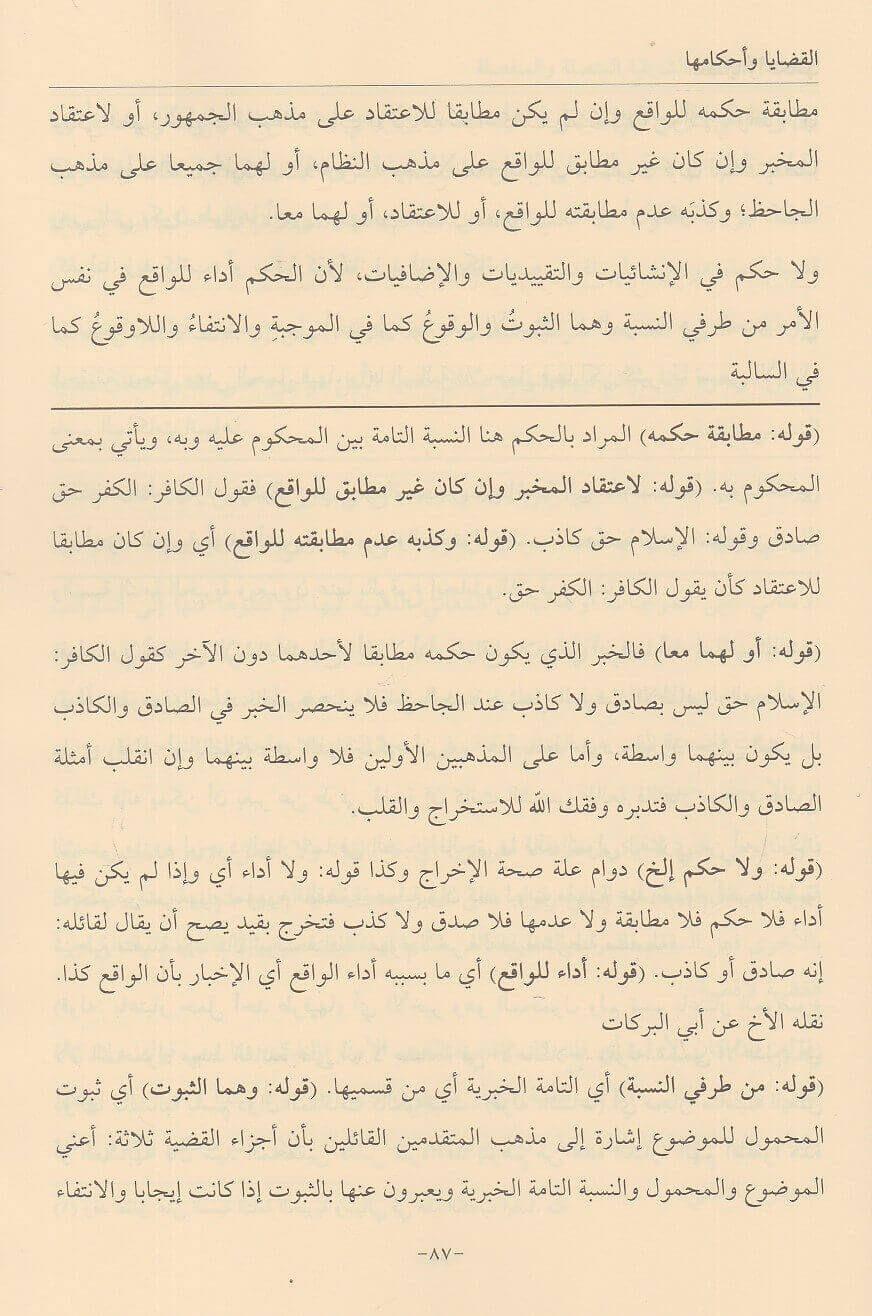 القضايا وأحكامها
مطابقة حكمه للواقع وإن لم يكن مطابقا للاعتقاد على مذهب الجمهور، أو لاعتقاد
المخبر وإن كان غير مطابق للواقع على مذهب النظام، أو لهما جميعا على مذهب
الجاحظ؛ وكذبَه عدم مطابقته للواقع، أو للاعتقاد، أو لهما معا.
ولا حكم في الإنشائيات والتقييديات والإضافيات، لأن الحكم أداء للواقع في نفس
الأمر من طرفي النسبة وهما الثبوتُ والوقوعُ كما في الموجبةِ والانتفاءُ واللاوقوعُ كما
في السالبة
(قوله: مطابقة حكمه) المراد بالحكم هنا النسبة التامة بين المحكوم عليه وبه، ويأتي بمعنى
المحكوم به. (قوله: لاعتقاد المخبر وإن كان غير مطابق للواقع) فقول الكافر: الكفر حق
صادق وقوله: الإسلام حق كاذب. (قوله: وكذبه عدم مطابقته للواقع) أي وإن كان مطابقا
للاعتقاد كأن يقول الكافر: الكفر حق.
(قوله: أو لهما معا) فالخبر الذي يكون حكمه مطابقا لأحدهما دون الآخر كقول الكافر:
الإسلام حق ليس بصادق ولا كاذب عند الجاحظ فلا ينحصر الخبر في الصادق والكاذب
بل يكون بينهما واسطة، وأما على المذهبين الأولين فلا واسطة بينهما وإن انقلب أمثلة
الصادق والكاذب فتدبره وفقك الله للاستخراج والقلب.
(قوله: ولا حكم إلخ) دوام علة صحة الإخراج وكذا قوله: ولا أداء أي وإذا لم يكن فيها
أداء فلا حكم فلا مطابقة ولا عدمها فلا صدق ولا كذب فتخرج بقيد يصح أن يقال لقائله:
إنه صادق أو كاذب. (قوله: أداء للواقع) أي ما بسببه أداء الواقع أي الإخبار بأن الواقع كذا.
نقله الأخ عن أبي البركات
(قوله: من طرفي النسبة) أي التامة الخبرية أي من قسميها. (قوله: وهما الثبوت) أي ثبوت
المحمول للموضوع إشارة إلى مذهب المتقدمين القائلين بأن أجزاء القضية ثلاثة: أعني
الموضوع والمحمول والنسبة التامة الخبرية ويعبرون عنها بالثبوت إذا كانت إيجابا والانتفاء
-٨٧-